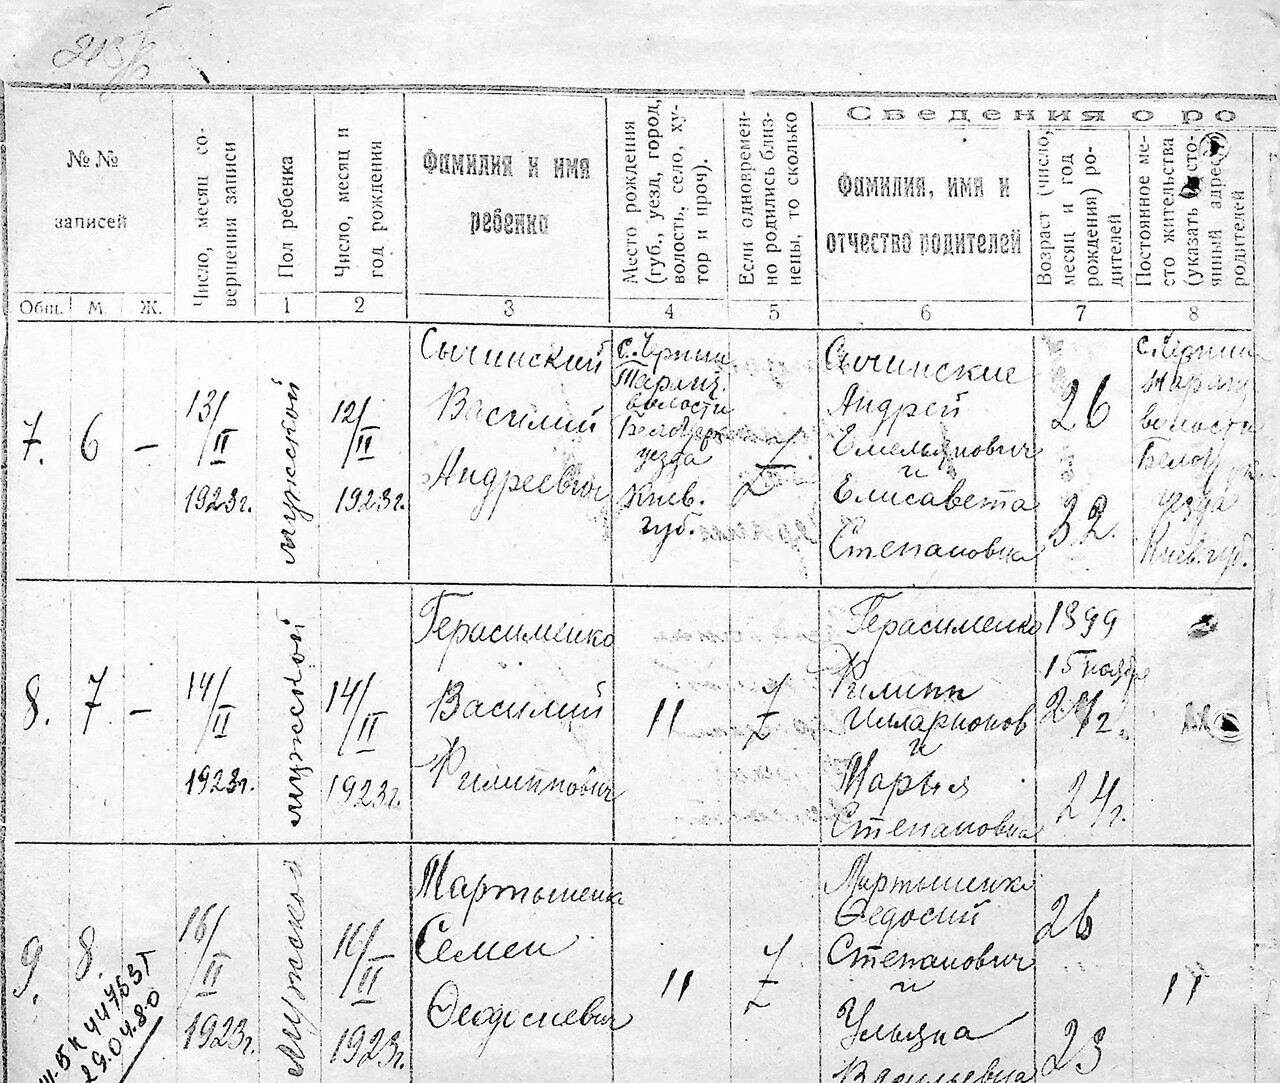 Сведения о ро
№№
записей
Число, месяц со-
вершения записи
Пол ребенка
Число, месяц и
год рождения
Фамилия и имя
ребенка
Место рождения
(губ., уезд, город,
волость, село, ху-
тор и проч).
Если одновремен-
но родились близ-
нецы, то сколько
Фамилия, имя и
отчество родителей
Возраст (число,
месяц и год
рождения) ро-
дителей
Постоянное ме-
сто жительства
(указать
адрес)
родителей
Общ. М. Ж. 1 2 3 4 5 6 7 8
7. 6 –
13/II
1923г.
мужской
12/II
1923г.
Сычинский
Василий
Андреевич
волости
уезда
Киев.
губ.
Сычинские
Андрей
Емельянович
и
Елисавета
Степановна
26
32.
волости
уезда
Киев. губ.
8. 7. –
14/II
1923г.
мужской
14/II
1923г.
Герасименко
Василий
Филиппович
11
Герасименко
Филипп
Илларионов
и
Марья
Степановна
1899
15 ноября
24г.
9. 8.
16/II
1923г.
Мужской
16/II
1923г.
Мартыненк
Семен
Феодосиевич
11
Мартыненк
Федосий
Степанович
и
Ульяна
Васильевна
26
23
11
29.04.80